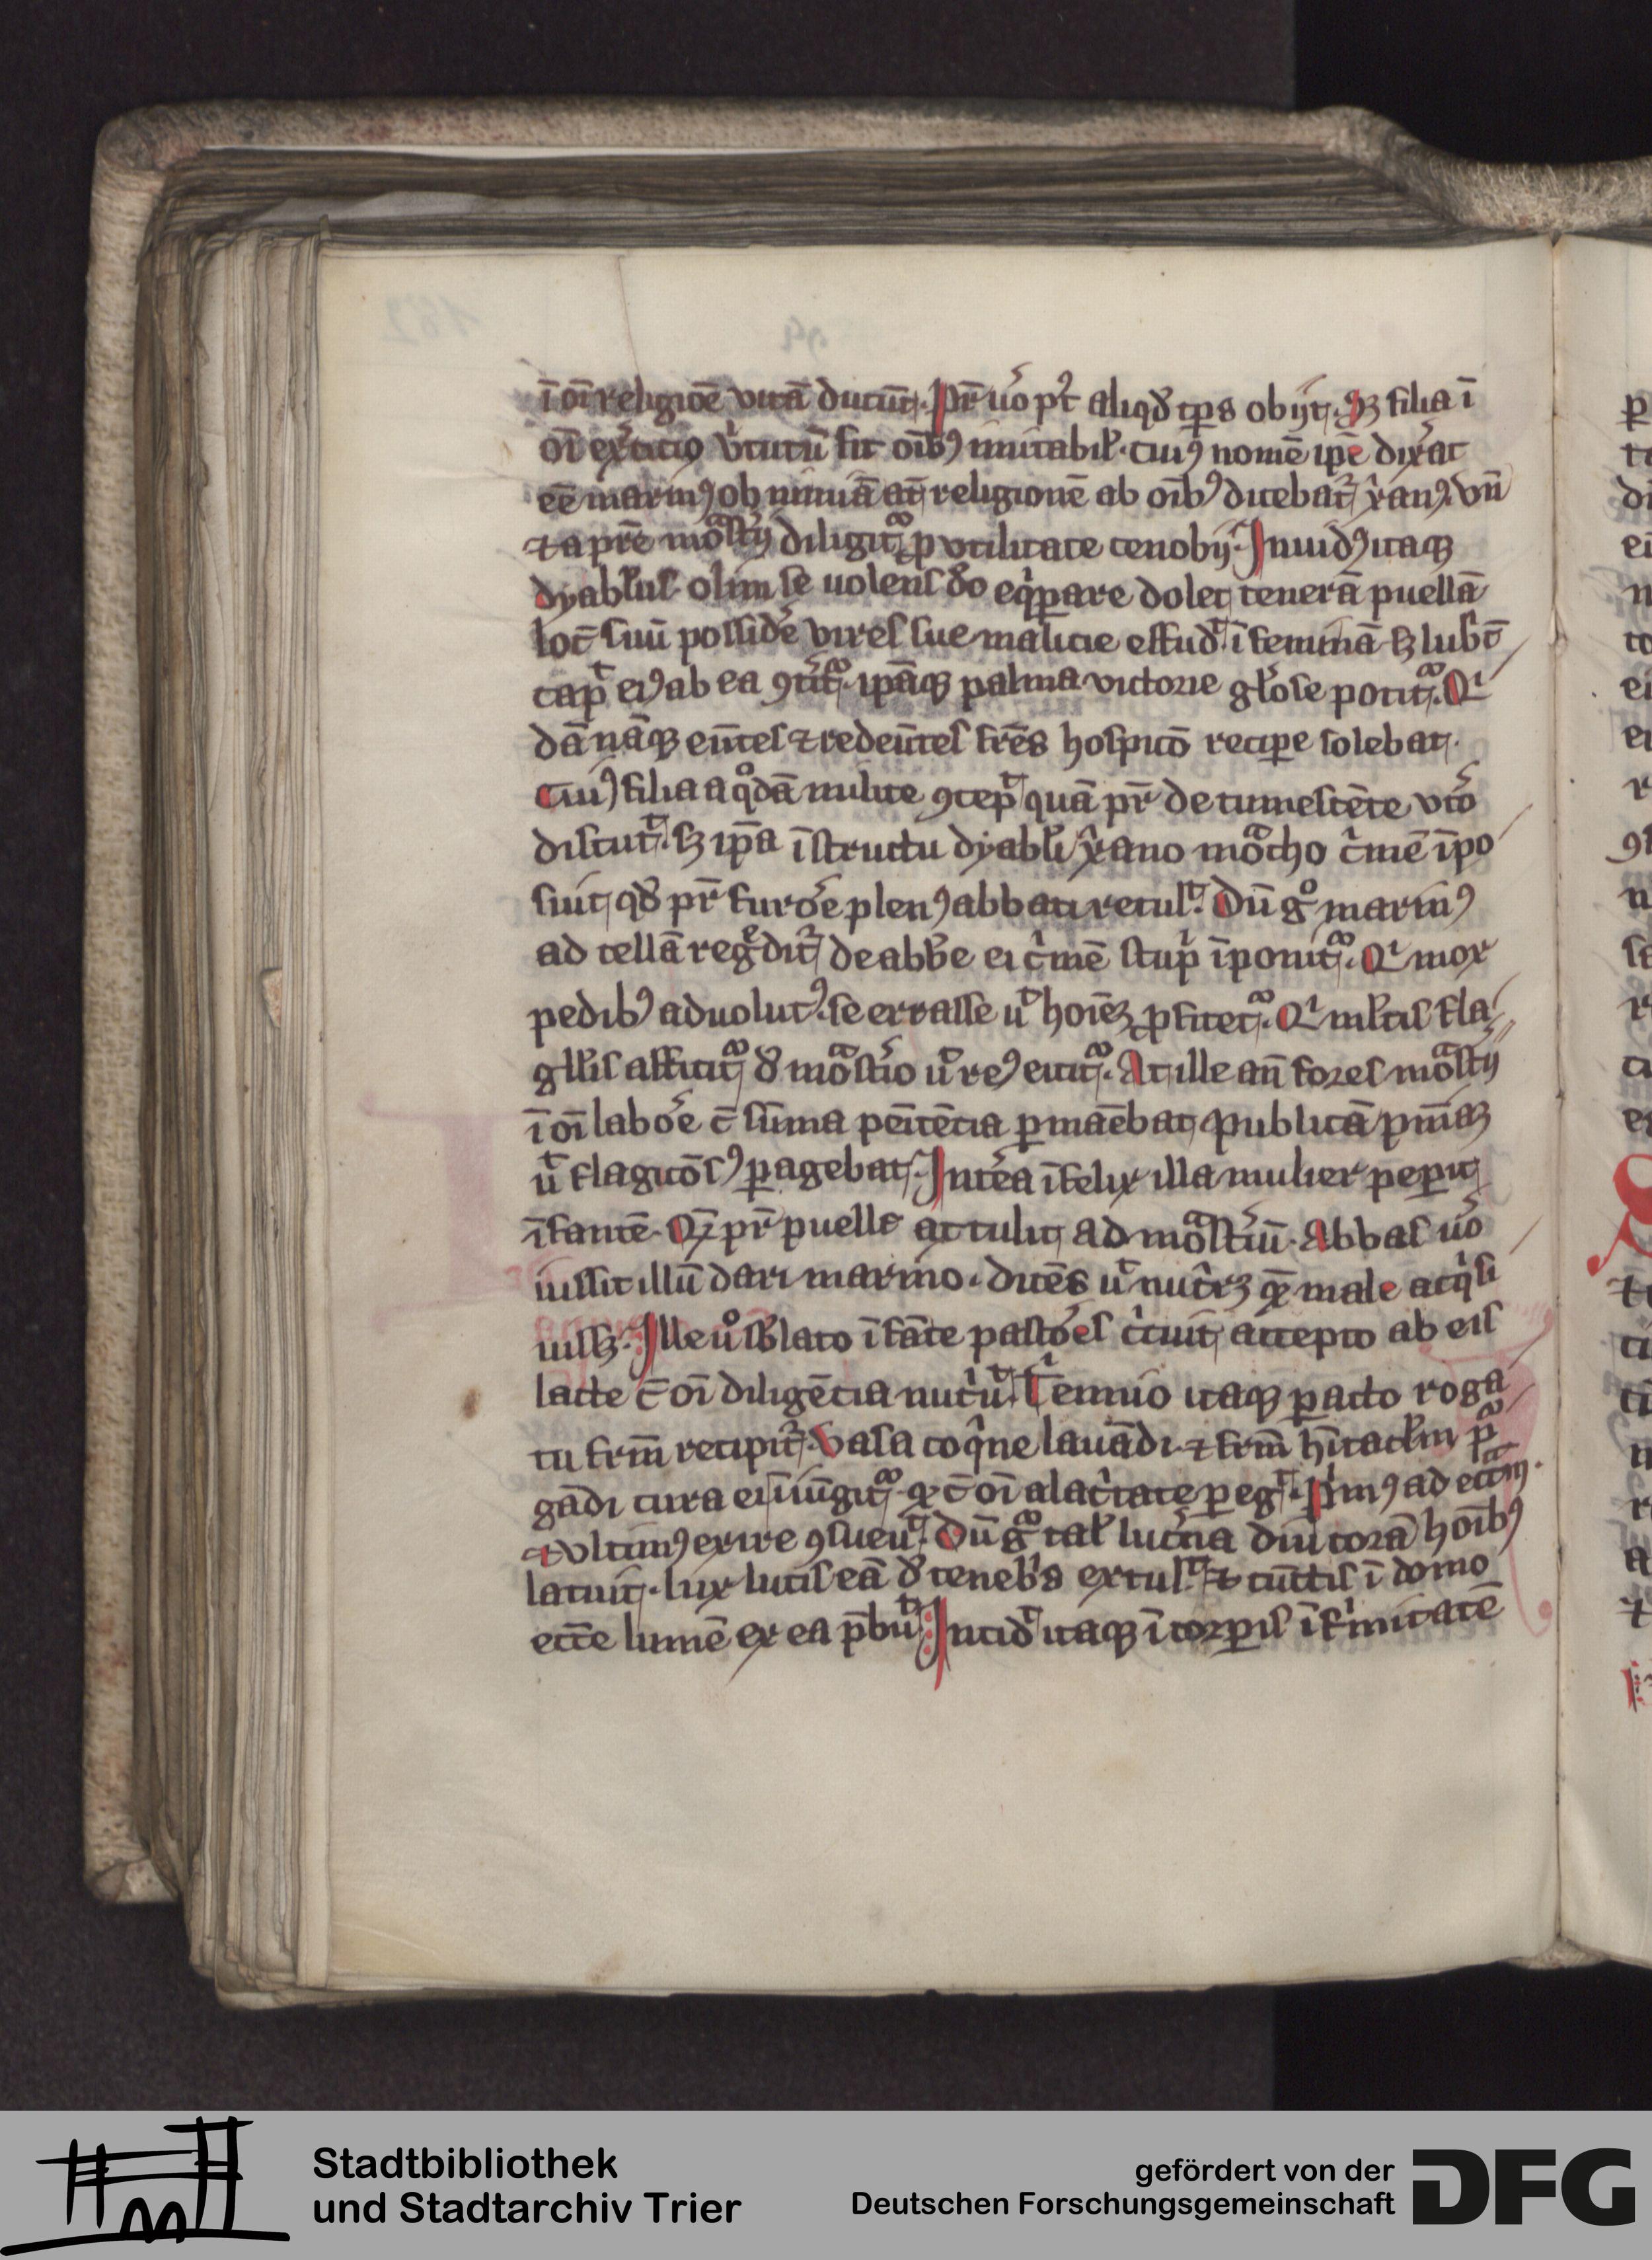 ī oī religiōe vitā ducūt. Pr̄ u̾o pꝰt aliqd̾ tp̄s obijt. Sꝫ filia ī
oī ex̾citio v̾tutū fit oībꝰ imitabil̾. cuiꝰ nomē ip̄e dix̾at
eē marinꝰ ob nimiā at̄ religionē ab oībꝰ dicebat᷑ xᷓanꝰ. vn̄
⁊ a pr̄e moᷓst̾ij diligit᷑ ꝓ vtilitate cenobij. Inuidꝰ itaqꝫ
dyabl̾us olim se uolens d̾o eqͥꝑare dolet tenerā puellā
loc̄ suū possid̾e vires sue malicie effud̾ ī feminā sꝫ lubc̄
cap̲ eiꝰ ab ea ꝯt̾it᷑. ip̄āqꝫ palma victorie gl̾ose potit᷑. Qͥ
dā nāqꝫ eūtes ⁊ redeūtes fr̄es hospicō reciꝑe solebat.
Cuiꝰ filia a qͦdā milite ꝯcep̲ quā pr̄ de tumescēte vt̾o
discut. sꝫ ip̄a īstructu dyabl̾i xᷓano moᷓcho cͥmē īpo
suit qd̾ pr̄ furo̾e plenꝰ abbati retul. Dū gͦ marinꝰ
ad cellā regͤdit᷑ de abb̾e ei cͥmē stupͥ īponit᷑. Qͥ mox
pedibꝰ aduolutꝰ. se errasse u hoīeꝫ ꝓfitet᷑. Qͥ ml̾tis fla
gl̾lis afficit᷑ d̾ moᷓst̾io uͦ reꝰ eicit᷑. At ille an̄ fores moᷓst̾ij
ī oī labo̾e c̄ sūma pēitēcia ꝑmaēbat publicā pn̄iāꝫ
u flagicōsꝰ ꝑagebat. Int̾ea īfelix illa mulier peꝑit
īfantē. Qꝫ pr̄ puelle attulit ad moᷓst̾iū. Abbas u̾o
iussit illū dari marino. dicēs u nutͥrꝫ qͤ male acqͥsi
uissꝫ. Ille uͦ sb̾lato īfāte pasto̾es cͥcuit accepto ab eis
lacte c̄ oī diligēcia nutͥu. Tͥennio itaqꝫ ꝑacto roga
tu frm̄ recipit᷑. Vasa coqͥne lauādi. ⁊ frm̄ h̄itacl̾m pᷓ
gādi cura ei īiūgit᷑. qͤ c̄ oī alacͥtate ꝑeg. Pͥmꝰ ad ecc̄m.
⁊ vltimꝰ exire ꝯsueu. Dū gͦ tal̾ luc̾na diu corā hoībꝰ
latuit. lux lucis eā d̾ teneb̾s extul. ⁊ cūctis ī domo
ecc̄e lumē ex ea p̄bu. Incid itaqꝫ ī corꝑis īfͥmitatē
Stadtbibliothek
und Stadtarchiv Trier
gefördert von der
Deutschen Forschungsgemeinschaft
DFG